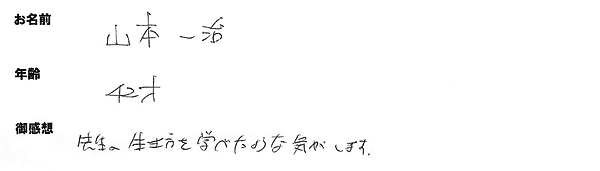 お名前
山本 一治
年齢
42才
御感想
先生の生き方を学べたような気がします。